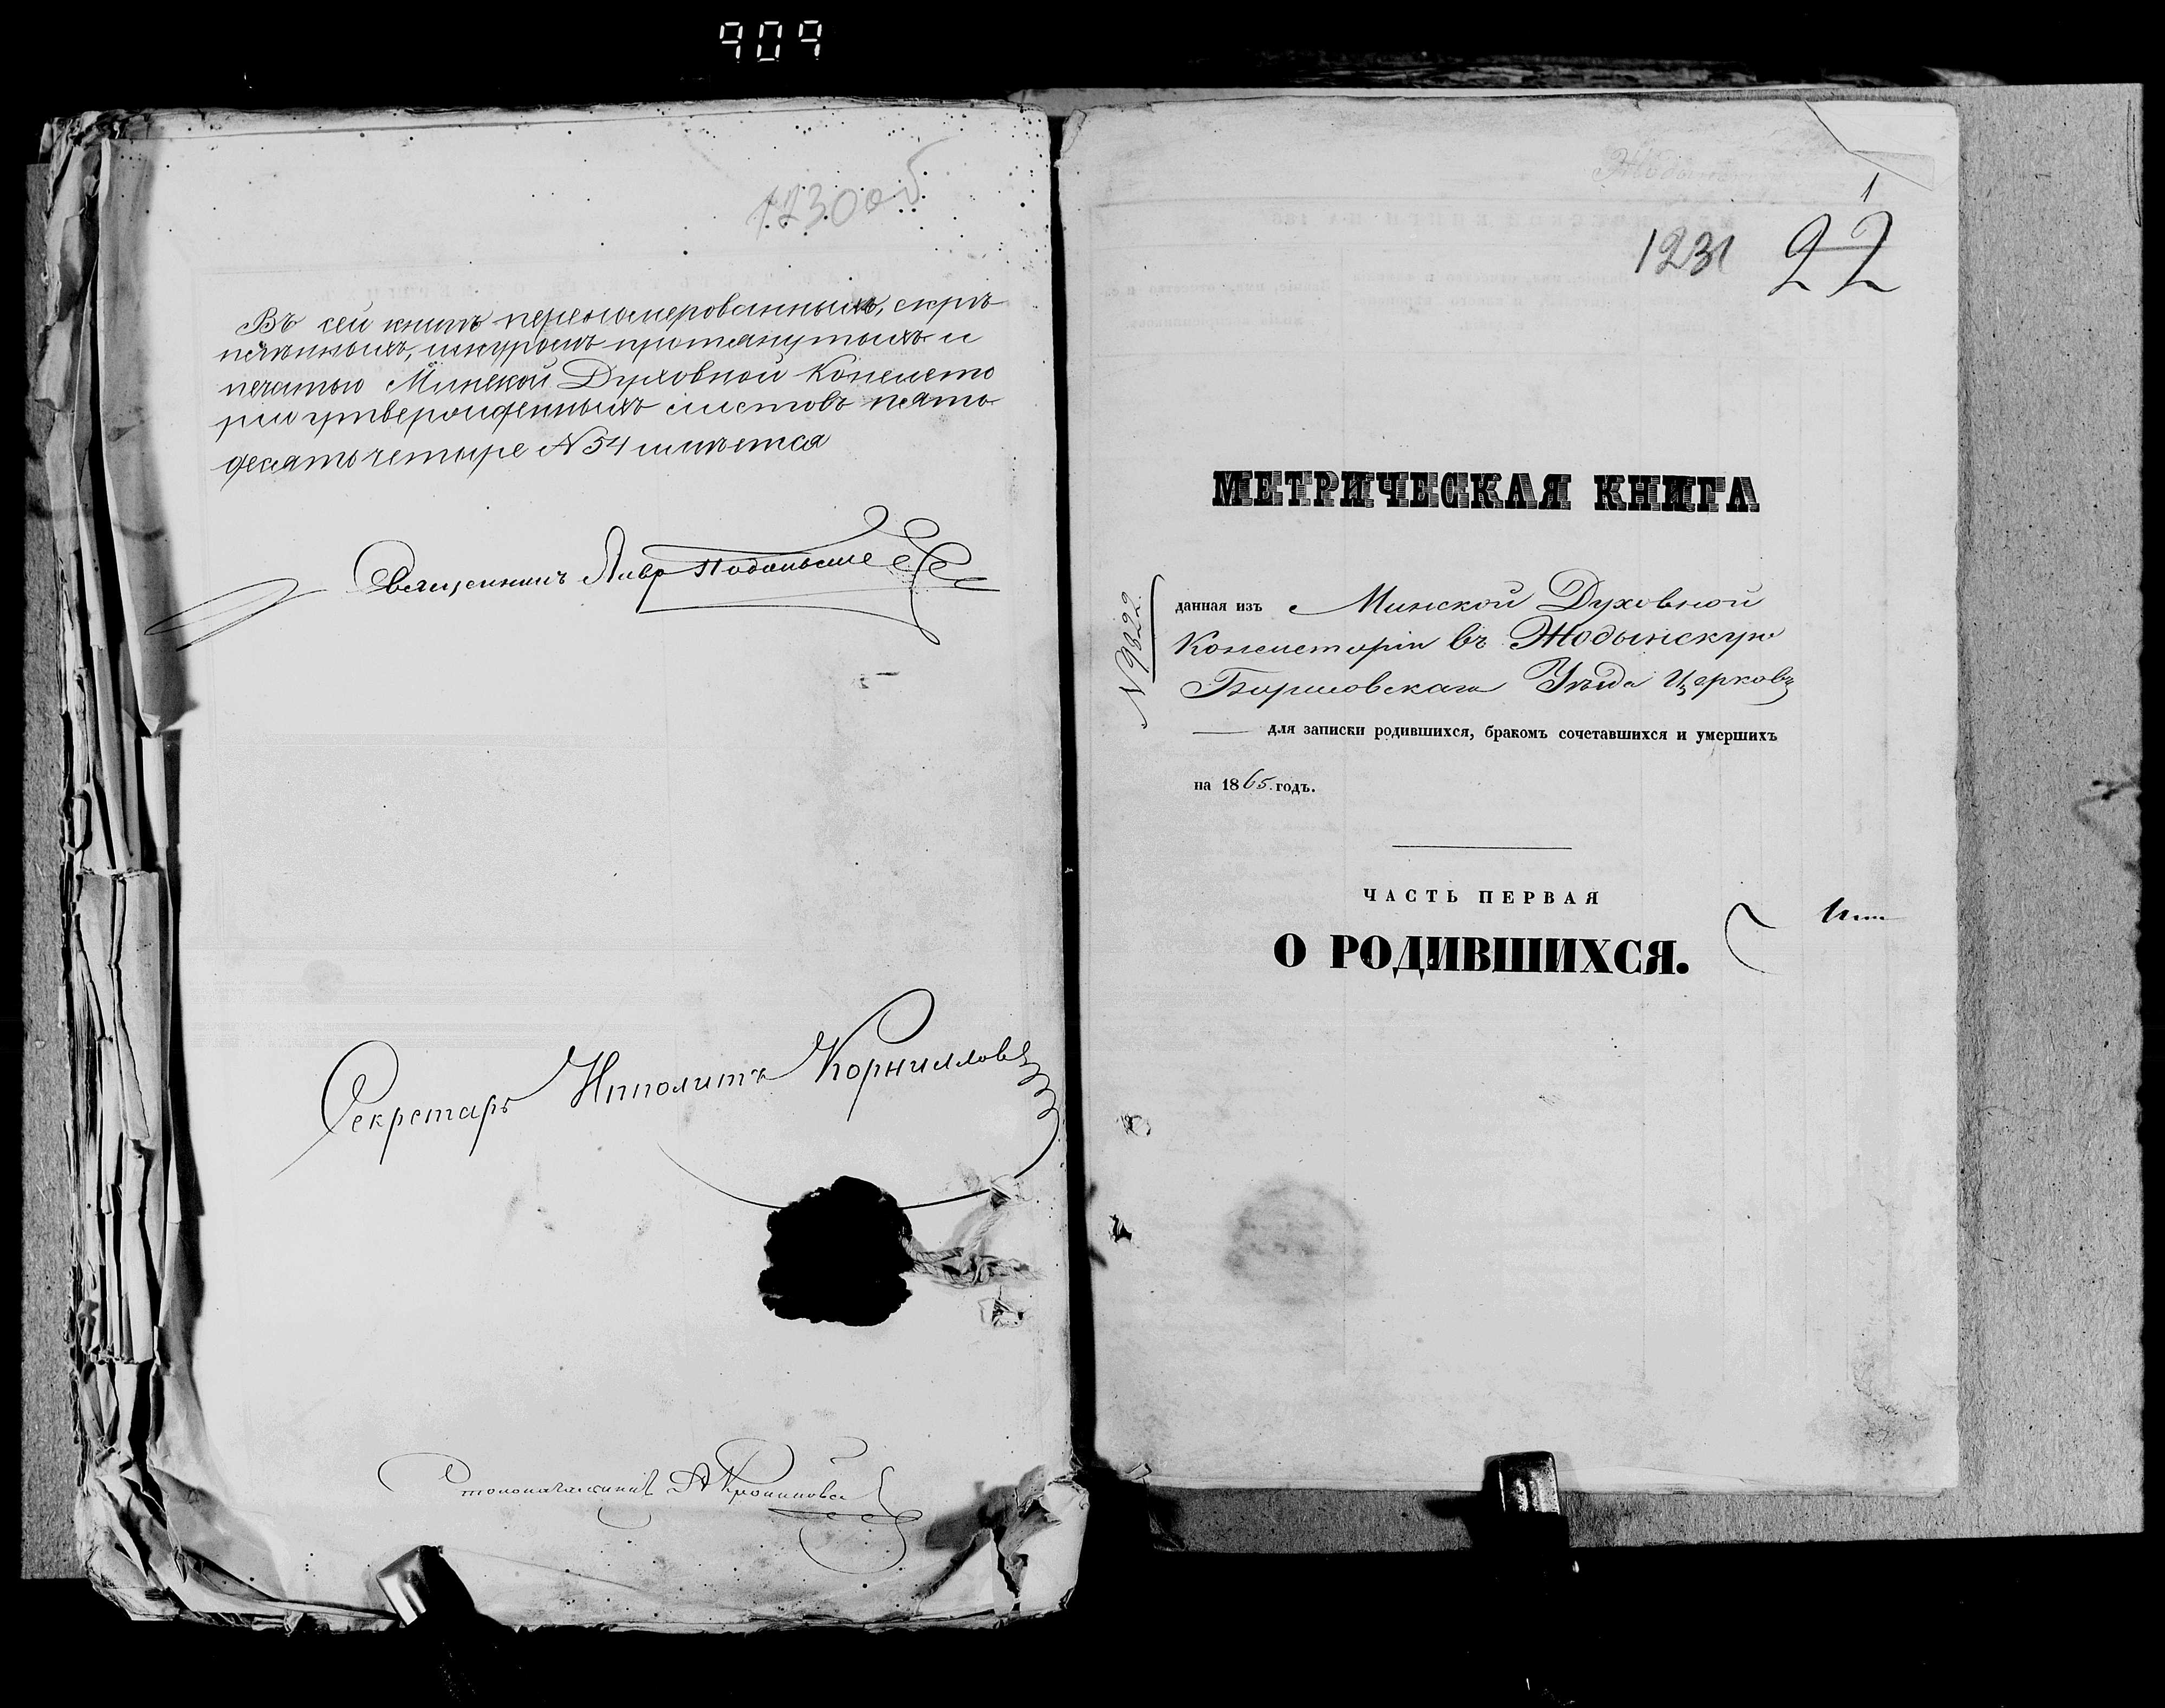 909
1230 об
Въ сей книгѣ перенумерованныхъ, скрѣ
пленныхъ, шнуромъ протянутыхъ и
печатью Минской Духовной Консисто
ріи утвержденныхъ листовъ пять
десять четыре N 54 имѣется
Священникъ
Секретарь Ипполитъ Корниловъ
Столоначальникъ
1
1231 22
МЕТРИЧЕСКАЯ КНИГА
N 9822
данная изъ Минской Духовной
Консисторіи въ Жодынскую
Борисовскаго Уѣзда Церковь
для записки родившихся, бракомъ сочетавшихся и умершихъ
на 1865 годъ.
ЧАСТЬ ПЕРВАЯ
О РОДИВШИХСЯ.